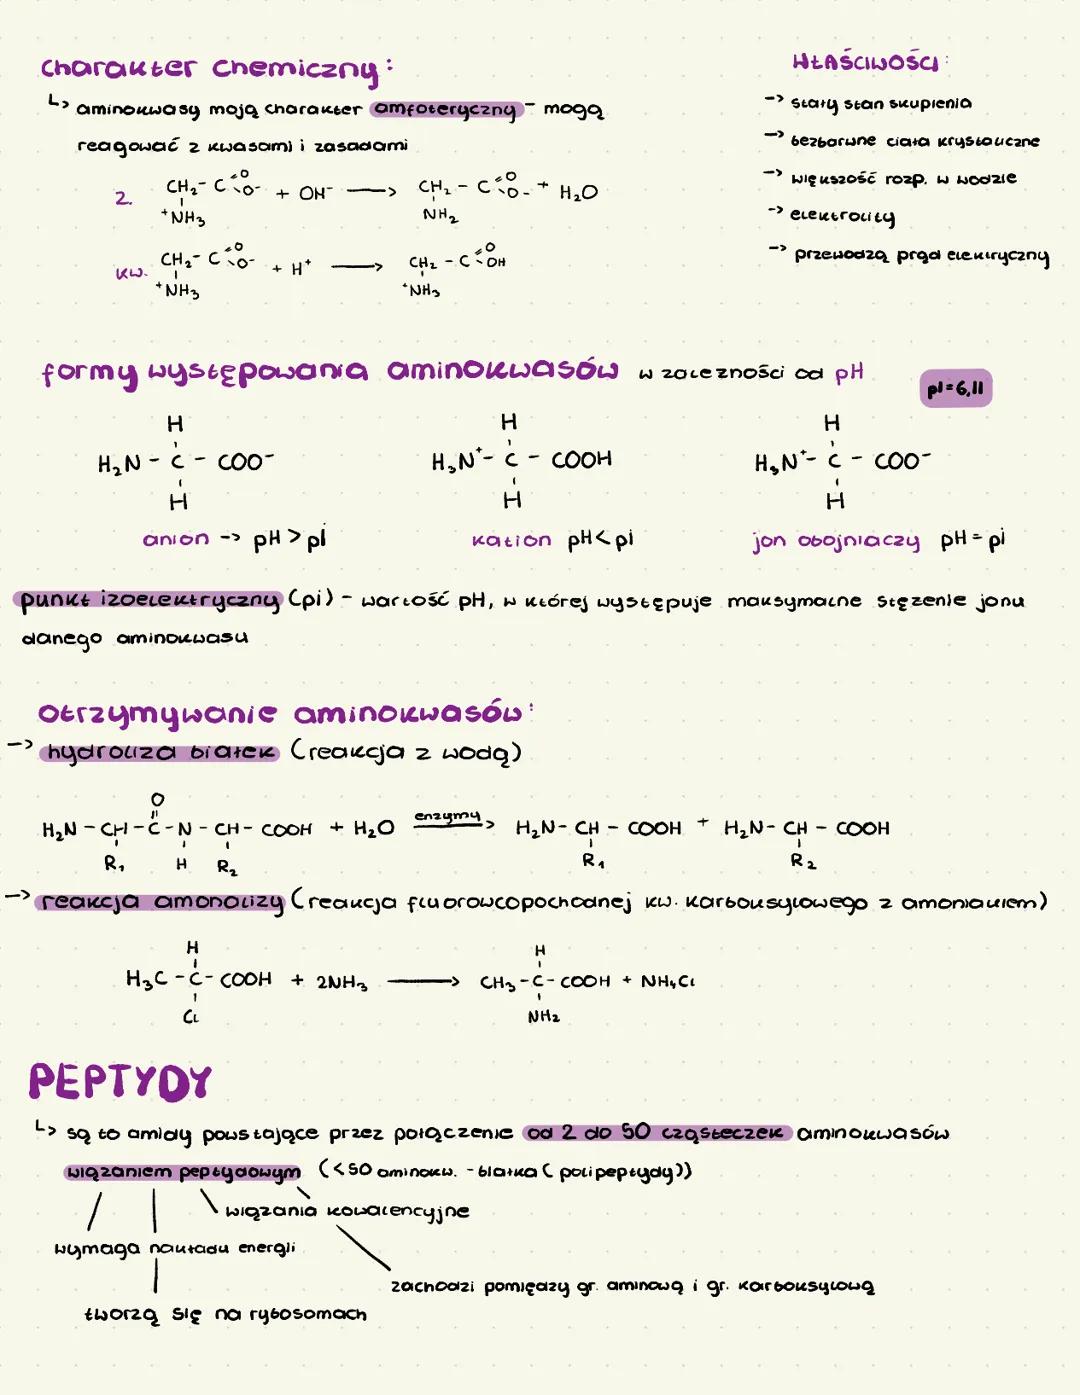 Charakter chemiczny:
↳ aminokwasy mają charakter amfoteryczny - mogą
reagować z kwasami i zasadami
z. CH₂ - C =O O⁻ + OH⁻ ⟶ CH₂ - C =O O⁻ + H₂O
⁺NH₃ NH₂
kw. CH₂ - C =O O⁻ + H⁺ ⟶ CH₂ - C =O OH
⁺NH₃ ⁺NH₃
WŁAŚCIWOŚCI:
-> stały stan skupienia
-> bezbarwne ciała krystaliczne
-> większość rozp. w wodzie
-> elektrolity
-> przewodzą prąd elektryczny
formy występowania aminokwasów w zależności od pH
pI=6,11
H H H
H₂N - C - COO⁻ H₃N⁺- C - COOH H₃N⁺- C - COO⁻
H H H
anion -> pH > pI kation pH < pi jon obojniaczy pH = pi
punkt izoelektryczny (pi) - wartość pH, w której występuje maksymalne stężenie jonu
danego aminokwasu
otrzymywanie aminokwasów:
-> hydroliza białek (reakcja z wodą)
O
H₂N - CH - C - N - CH - COOH + H₂O enzymy -> H₂N - CH - COOH + H₂N - CH - COOH
R₁ H R₂ R₁ R₂
-> reakcja amonolizy (reakcja fluorowcopochodnej kw. karboksylowego z amoniakiem)
H H
H₃C - C - COOH + 2NH₃ ⟶ CH₃ - C - COOH + NH₄Cl
Cl NH₂
PEPTYDY
↳ są to amidy powstające przez połączenie od 2 do 50 cząsteczek aminokwasów
wiązaniem peptydowym (<50 aminokw. - białka (polipeptydy))
wiązania kowalencyjne
wymaga nakładu energii
zachodzi pomiędzy gr. aminową i gr. karboksylową
tworzą się na rybosomach